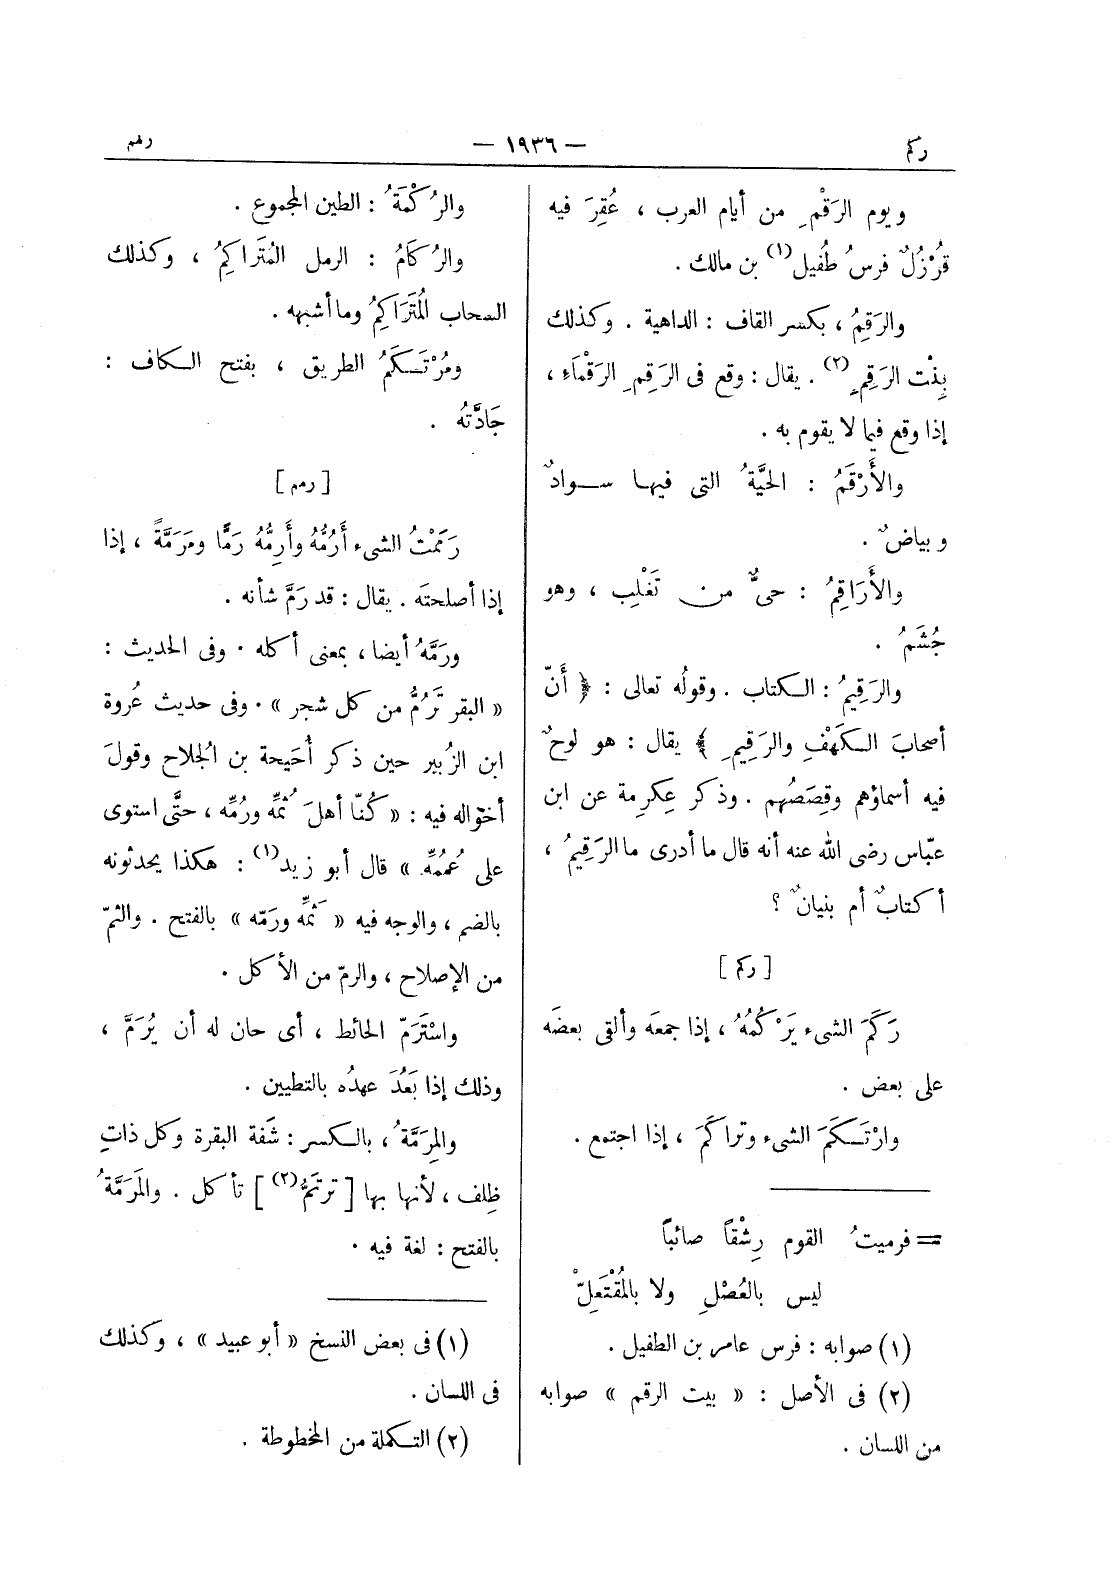 ركم
— ١٩٣٦ —
رهم
ويوم الرَقْمِ من أيام العرب ، عُقِرَ فيه
قُرْزُلٌ فرسُ طُفيل(١) بن مالك .
والرَقِمُ ، بكسر القاف : الداهية . وكذلك
بِنْت الرَقِمِ(٢) . يقال : وقع فى الرَقِمِ الرَقْماَءِ ،
إذا وقع فيما لا يقوم به .
والأَرْقَمُ : الحيَّةُ التى فيها سوادٌ
وبياضٌ .
والأَرَاقِمُ : حىٌّ من تَغْلِب ، وهو
جُشَمُ .
والرَقِيمُ : الكتاب . وقولُه تعالى : ﴿ أَنّ
أصحابَ الكَهْفِ والرَقِيمِ ﴾ يقال : هو لوحٌ
فيه أسماؤهم وقِصَصُهم . وذكر عِكرِمة عن ابن
عبّاس رضى الله عنه أنه قال ما أدرى ما الرَقِيمُ ،
أكتابٌ أم بنيانٌ ؟
[ ركم ]
رَكَمَ الشىء يَرْكُمُهُ ، إذا جمعَه وألقى بعضَه
على بعض .
وارْتَكَمَ الشىء وتراكَمَ ، إذا اجتمع .
= فرميتُ القوم رِشْقاً صائباً
ليس بالعُصْلِ ولا بالمُقْتَعِلّْ
(١) صوابه : فرس عامر بن الطفيل .
(٢) فى الأصل : « بيت الرقم » صوابه
من اللسان .
والرُكْمَةُ : الطين المجموع .
والرُكَامُ : الرمل المُتَراكِمُ ، وكذلك
السحاب المُتَرَاكِمُ وما أشبهه .
ومُرْتَكَمُ الطريق ، بفتح الكاف :
جَادَّتهُ .
[ رمم ]
رَمَمْتُ الشىء أَرُمُّهُ وأَرِمُّهُ رَمًّا ومَرَمَّةً ، إذا
إذا أصلحتَه . يقال : قد رَمَّ شأنه .
ورَمَّهُ أيضا ، بمعنى أكله . وفى الحديث :
« البقر تَرُمُّ من كل شجر » . وفى حديث عُروة
ابن الزُبير حين ذكر أُحَيحة بن الجُلاح وقولَ
أخواله فيه : « كُنّا أهلَ ثُمِّه ورُمِّه ، حتَّى استوى
على عُمُمِّه » قال أبو زيد(١) : هكذا يحدثونه
بالضم ، والوجه فيه « ثَمِّه ورَمّه » بالفتح . والثمّ
من الإصلاح ، والرمّ من الأكل .
واسْتَرَمّ الحائط ، أى حان له أن يُرَمَّ ،
وذلك إذا بَعُدَ عهدُه بالتطيين .
والمِرَمَّةُ ، بالكسر : شَفة البقرة وكل ذاتِ
ظِلف ، لأنها بها [ ترتَمُّ(٢) ] تأكل . والمَرَمَّةُ
بالفتح : لغة فيه .
(١) فى بعض النسخ « أبو عبيد » ، وكذلك
فى اللسان .
(٢) التكملة من المخطوطة .